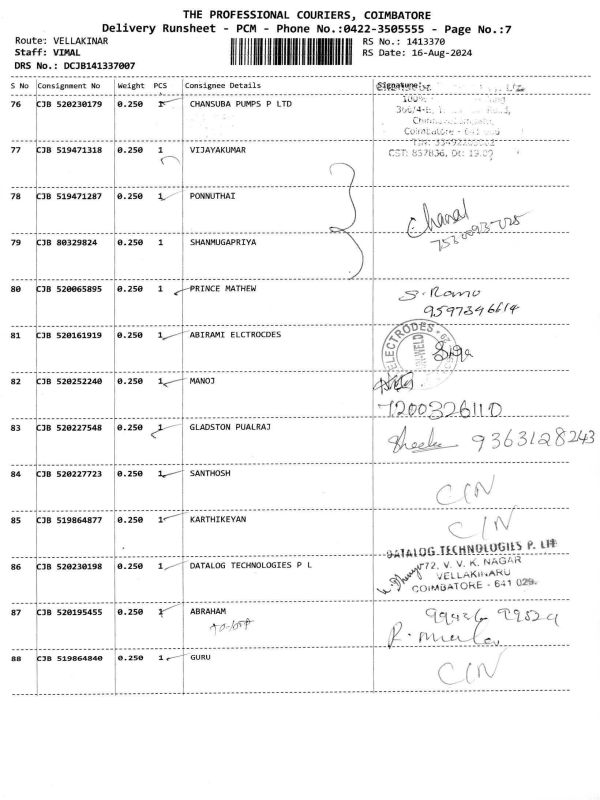 THE PROFESSIONAL COURIERS, COIMBATORE
Delivery Runsheet - PCM - Phone No.:0422-3505555 - Page No.:7
Route: VELLAKINAR
RS No.: 1413370
Staff: VIMAL
RS Date: 16-Aug-2024
DRS No.: DCJB141337007
S No Consignment No Weight PCS Consignee Details Signature
76 CJB 520230179 0.250 1 CHANSUBA PUMPS P LTD
Coimbatore - 641
77 CJB 519471318 0.250 1 VIJAYAKUMAR
78 CJB 519471287 0.250 1 PONNUTHAI
79 CJB 80329824 0.250 1 SHANMUGAPRIYA
80 CJB 520065895 0.250 1 PRINCE MATHEW
9597346614
81 CJB 520161919 0.250 1 ABIRAMI ELCTROCDES
ELECTRODES
82 CJB 520252240 0.250 1 MANOJ
7200326110
83 CJB 520227548 0.250 1 GLADSTON PUALRAJ
9363128243
84 CJB 520227723 0.250 1 SANTHOSH
CIN
85 CJB 519864877 0.250 1 KARTHIKEYAN
CIN
86 CJB 520230198 0.250 1 DATALOG TECHNOLOGIES P L
DATALOG TECHNOLOGIES P. Ltd
72, V. V. K. NAGAR
VELLAKINARU
COIMBATORE - 641 029.
87 CJB 520195455 0.250 1 ABRAHAM
88 CJB 519864840 0.250 1 GURU
CIN